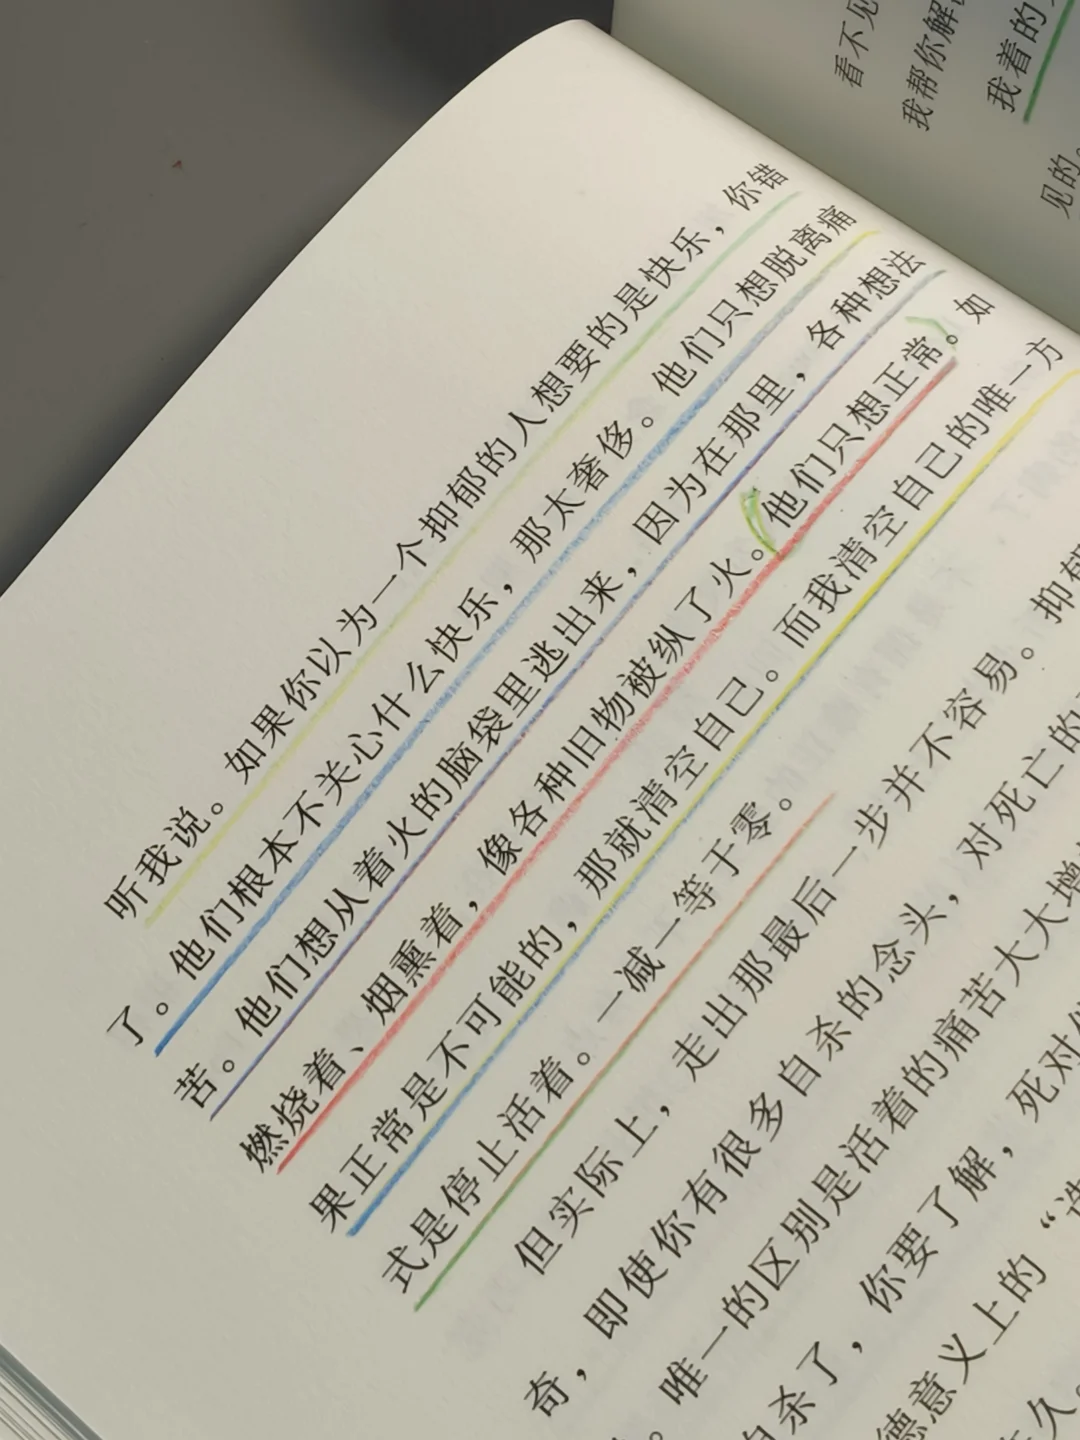 看不见
我帮你解
我着的
见的。
听我说。如果你以为一个抑郁的人想要的是快乐，你错
了。他们根本不关心什么快乐，那太奢侈。他们只想脱离痛
苦。他们想从着火的脑袋里逃出来，因为在那里，各种想法
燃烧着、烟熏着，像各种旧物被纵了火。他们只想正常。如
果正常是不可能的，那就清空自己。而我清空自己的唯一方
式是停止活着。一减一等于零。
但实际上，走出那最后一步并不容易。抑郁
奇，即使你有很多自杀的念头，对死亡的
。唯一的区别是活着的痛苦大大增
自杀了，你要了解，死对
德意义上的“选
久。